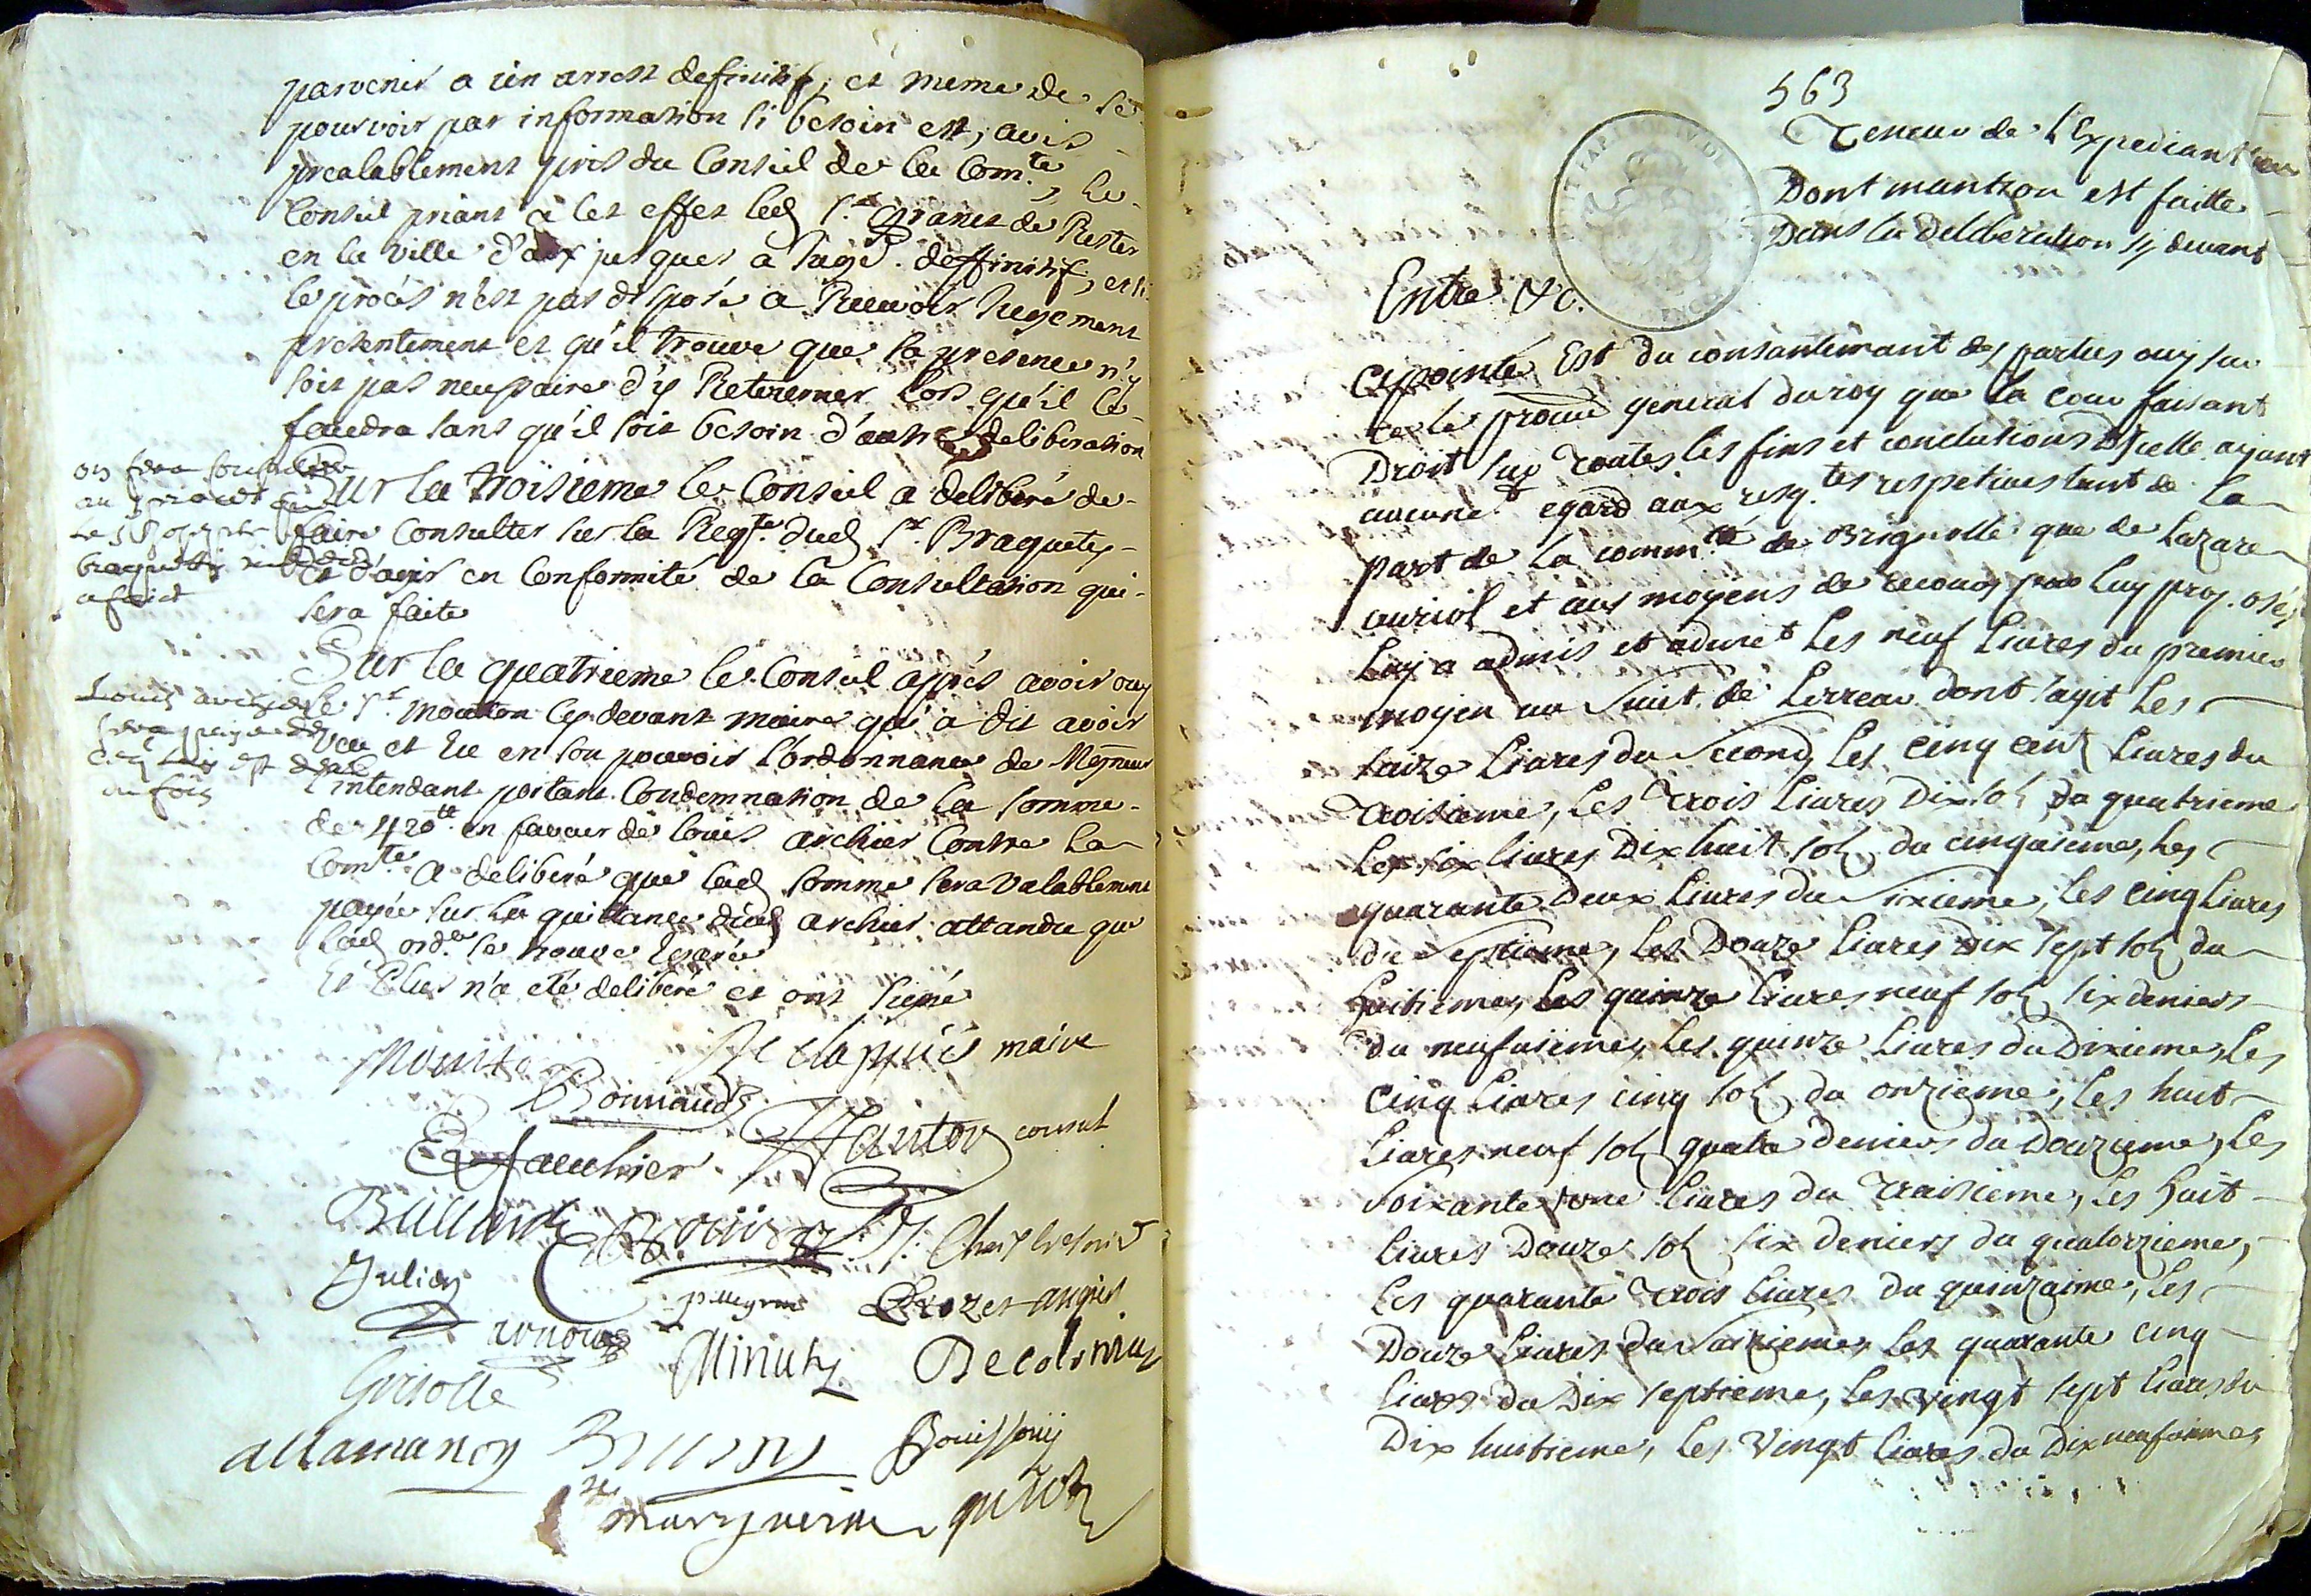 parvenir a un arrest definitif, et meme de se
pourvoir par information si besoin est, avis
prealablement pris du Conseil de la Com.te, Le
Conseil priant a cet effet led Sr. Granet de Rester
en la ville d'aix jusques a Juge. deffinitif, et si
le procés n'est pas disposé a Recevoir Jugement
presentement et qu'il trouve que sa presence n'y
soit pas necessaire d'y Retourner Lors qu'il le
faudra sans qu'il soit besoin d'autre deliberation
Sur la troisieme le Conseil a deliberé de
faire Consulter sur la Reqte. dud Sr. Braquety
Et d'agir en Conformité de la Consultation qui
sera faite
on fera consulter
braquety
a fait
Sur la quatrieme le Conseil aprés avoir ouy
le Sr. mouton cy devant maire qui a dit avoir
veu et Eu en son pouvoir l'ordonnance de Mgneur
L'intendant portant Condemnation de la somme
de 420tt en faveur de louis archier Contre la
Com.te a deliberé que lad somme sera valablement
payée sur la quittance dud archier attandu que
lad ord.ce se trouve Egarée
Et Plus n'a eté deliberé et ont signé
Louis archier
sera payé
De clapiés maire
Bonnaud
fauchier
consul
Julien
Crozet angies
Minuty Decolonia
Grisolle
allamanon Brun Bouissony
563
Teneur de L'Expediant
Dont mantion est faitte
Dans la deliberation sy devant
Entre &c.
Apointé Est du consantemant des parties ouy sur
ce le procur general du roy que la cour faisant
Droit sur toutes les fins et conclutions d'Icelle ayant
aucunet egard aux reqtes respetives tant de la
part de la commté de Brignolle que de Lazare
auriol et aux moyens de recours par luy proposés
Luy a admis et admet Les neuf livres du premier
moyen au de Lerreau dont sagit les
saize livres du second, Les cinq cent livres du
troisieme, Les trois livres Dix sols du quatrieme
Les six livres Dix huit sols du cinquieme, les
quarante Deux livres du sixieme, Les cinq livres
du septieme, Les Douze livres Dix sept sols du
huitieme, Les quinze livres neuf sols six deniers
du neufuieme, Les quinze livres du Dixieme, Les
cinq livres cinq sols du onzieme, Les huit
livres neuf sols quatre deniers du Douzieme, Les
soixante une livres du traisieme, Les huit
livres Douze sols six deniers du quatorzieme,
Les quarante trois livres du quinzaime, Les
Douze livres du saizieme, Les quarante cinq
livres du Dix septieme, Les vingt sept livres du
Dix huitieme, Les vingt livres du Dix neufuieme